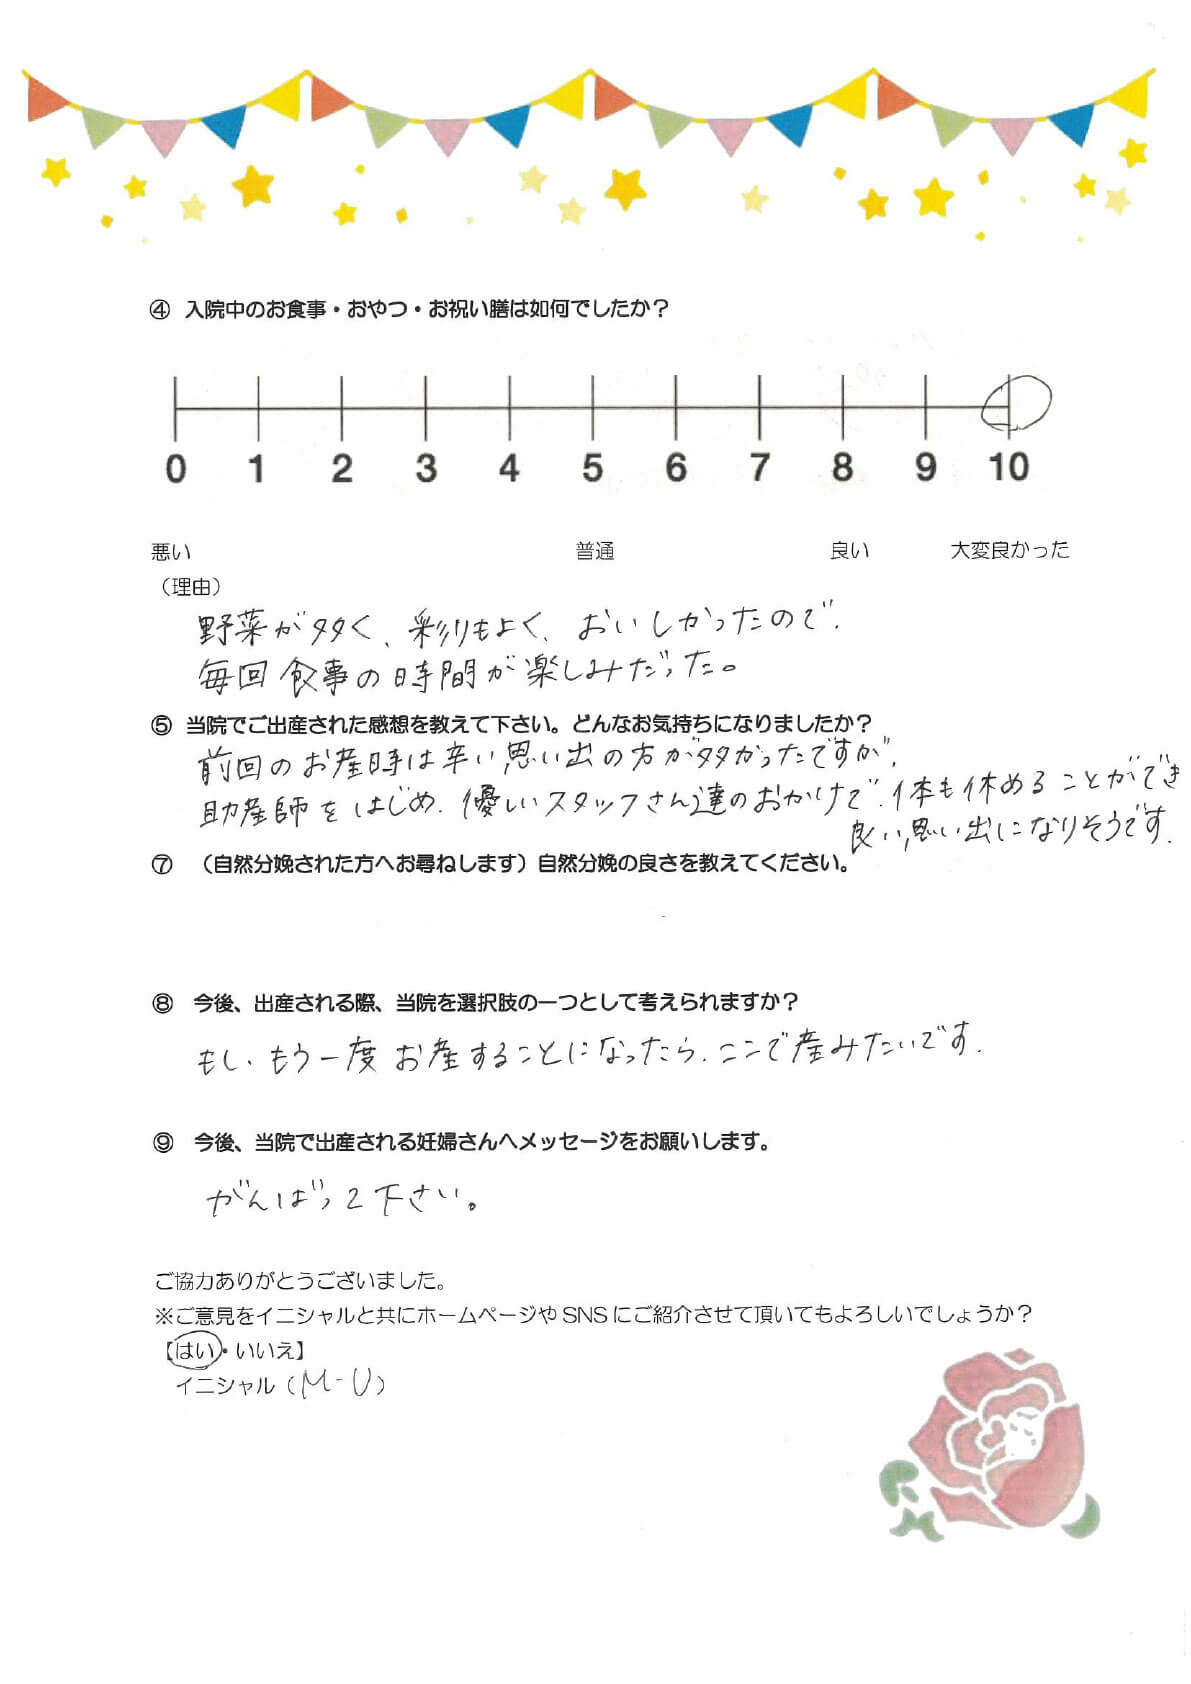 ④ 入院中のお食事・おやつ・お祝い膳は如何でしたか？
0 1 2 3 4 5 6 7 8 9 10
悪い 普通 良い 大変良かった
（理由）
野菜が多く、彩りもよく、おいしかったので、
毎回食事の時間が楽しみだった。
⑤ 当院でご出産された感想を教えて下さい。どんなお気持ちになりましたか？
前回のお産時は辛い思い出の方が多かったですが、
助産師をはじめ、優しいスタッフさん達のおかげで、体も休めることができ
良い思い出になりそうです．
⑦ （自然分娩された方へお尋ねします）自然分娩の良さを教えてください。
⑧ 今後、出産される際、当院を選択肢の一つとして考えられますか？
もし、もう一度お産することになったら、ここで産みたいです．
⑨ 今後、当院で出産される妊婦さんへメッセージをお願いします。
がんばって下さい。
ご協力ありがとうございました。
※ご意見をイニシャルと共にホームページや SNS にご紹介させて頂いてもよろしいでしょうか？
【はい・いいえ】
イニシャル（M-U）